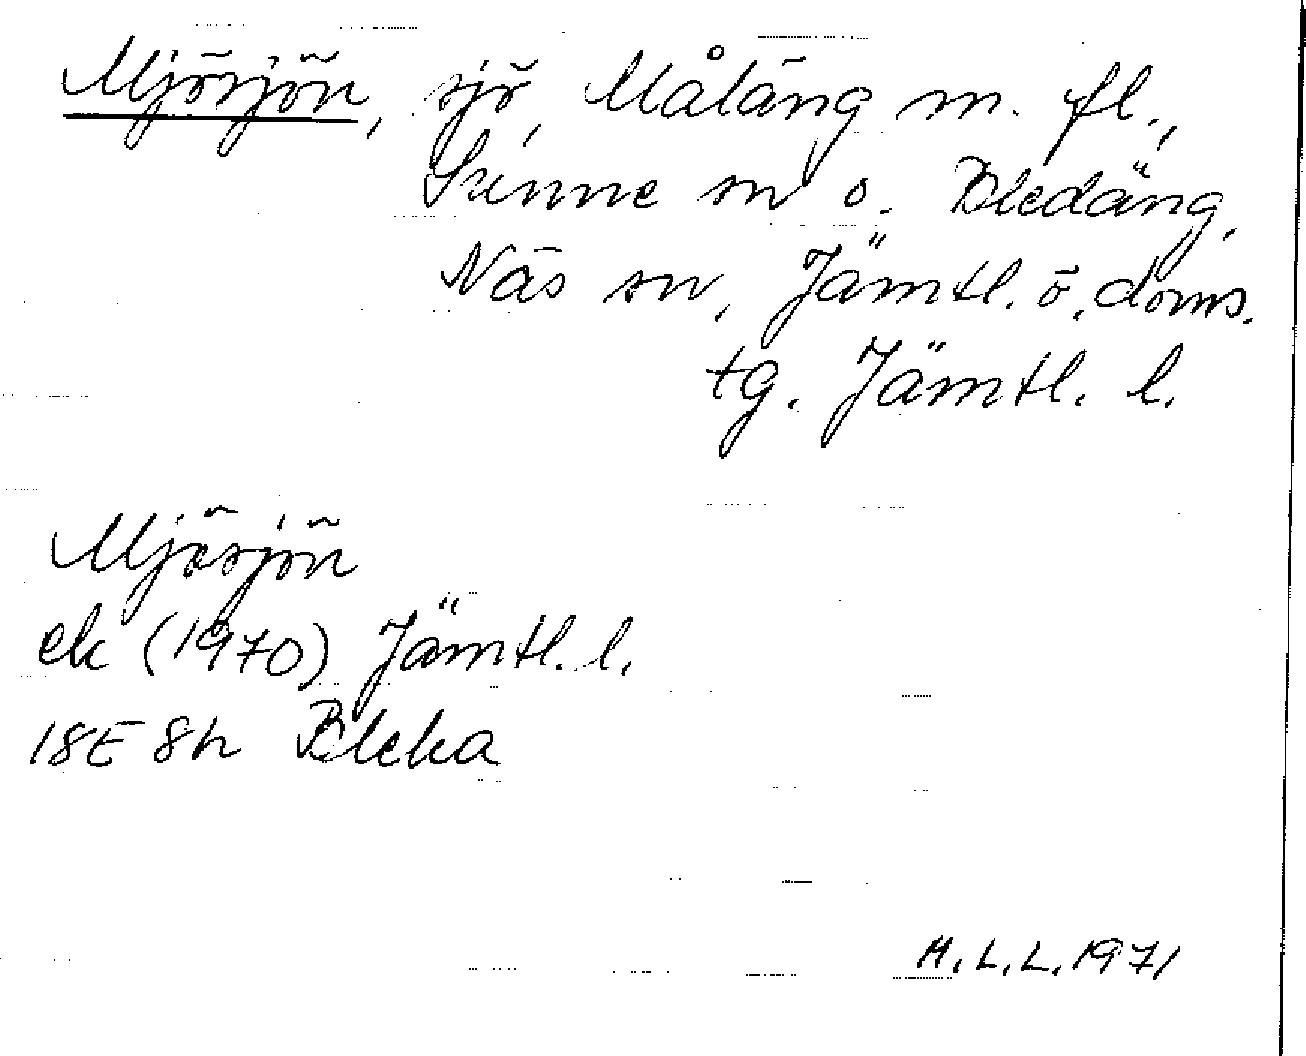 Mjösjön, sjö, Måläng m. fl.,
Sunne sn o. Bleäng,
Näs sn, Jämtl. ö. doms.
tg. Jämtl. l.
Mjösjön
ek (1970) Jämtl. l.
18E 8h Bleka
H.L.L. 1971